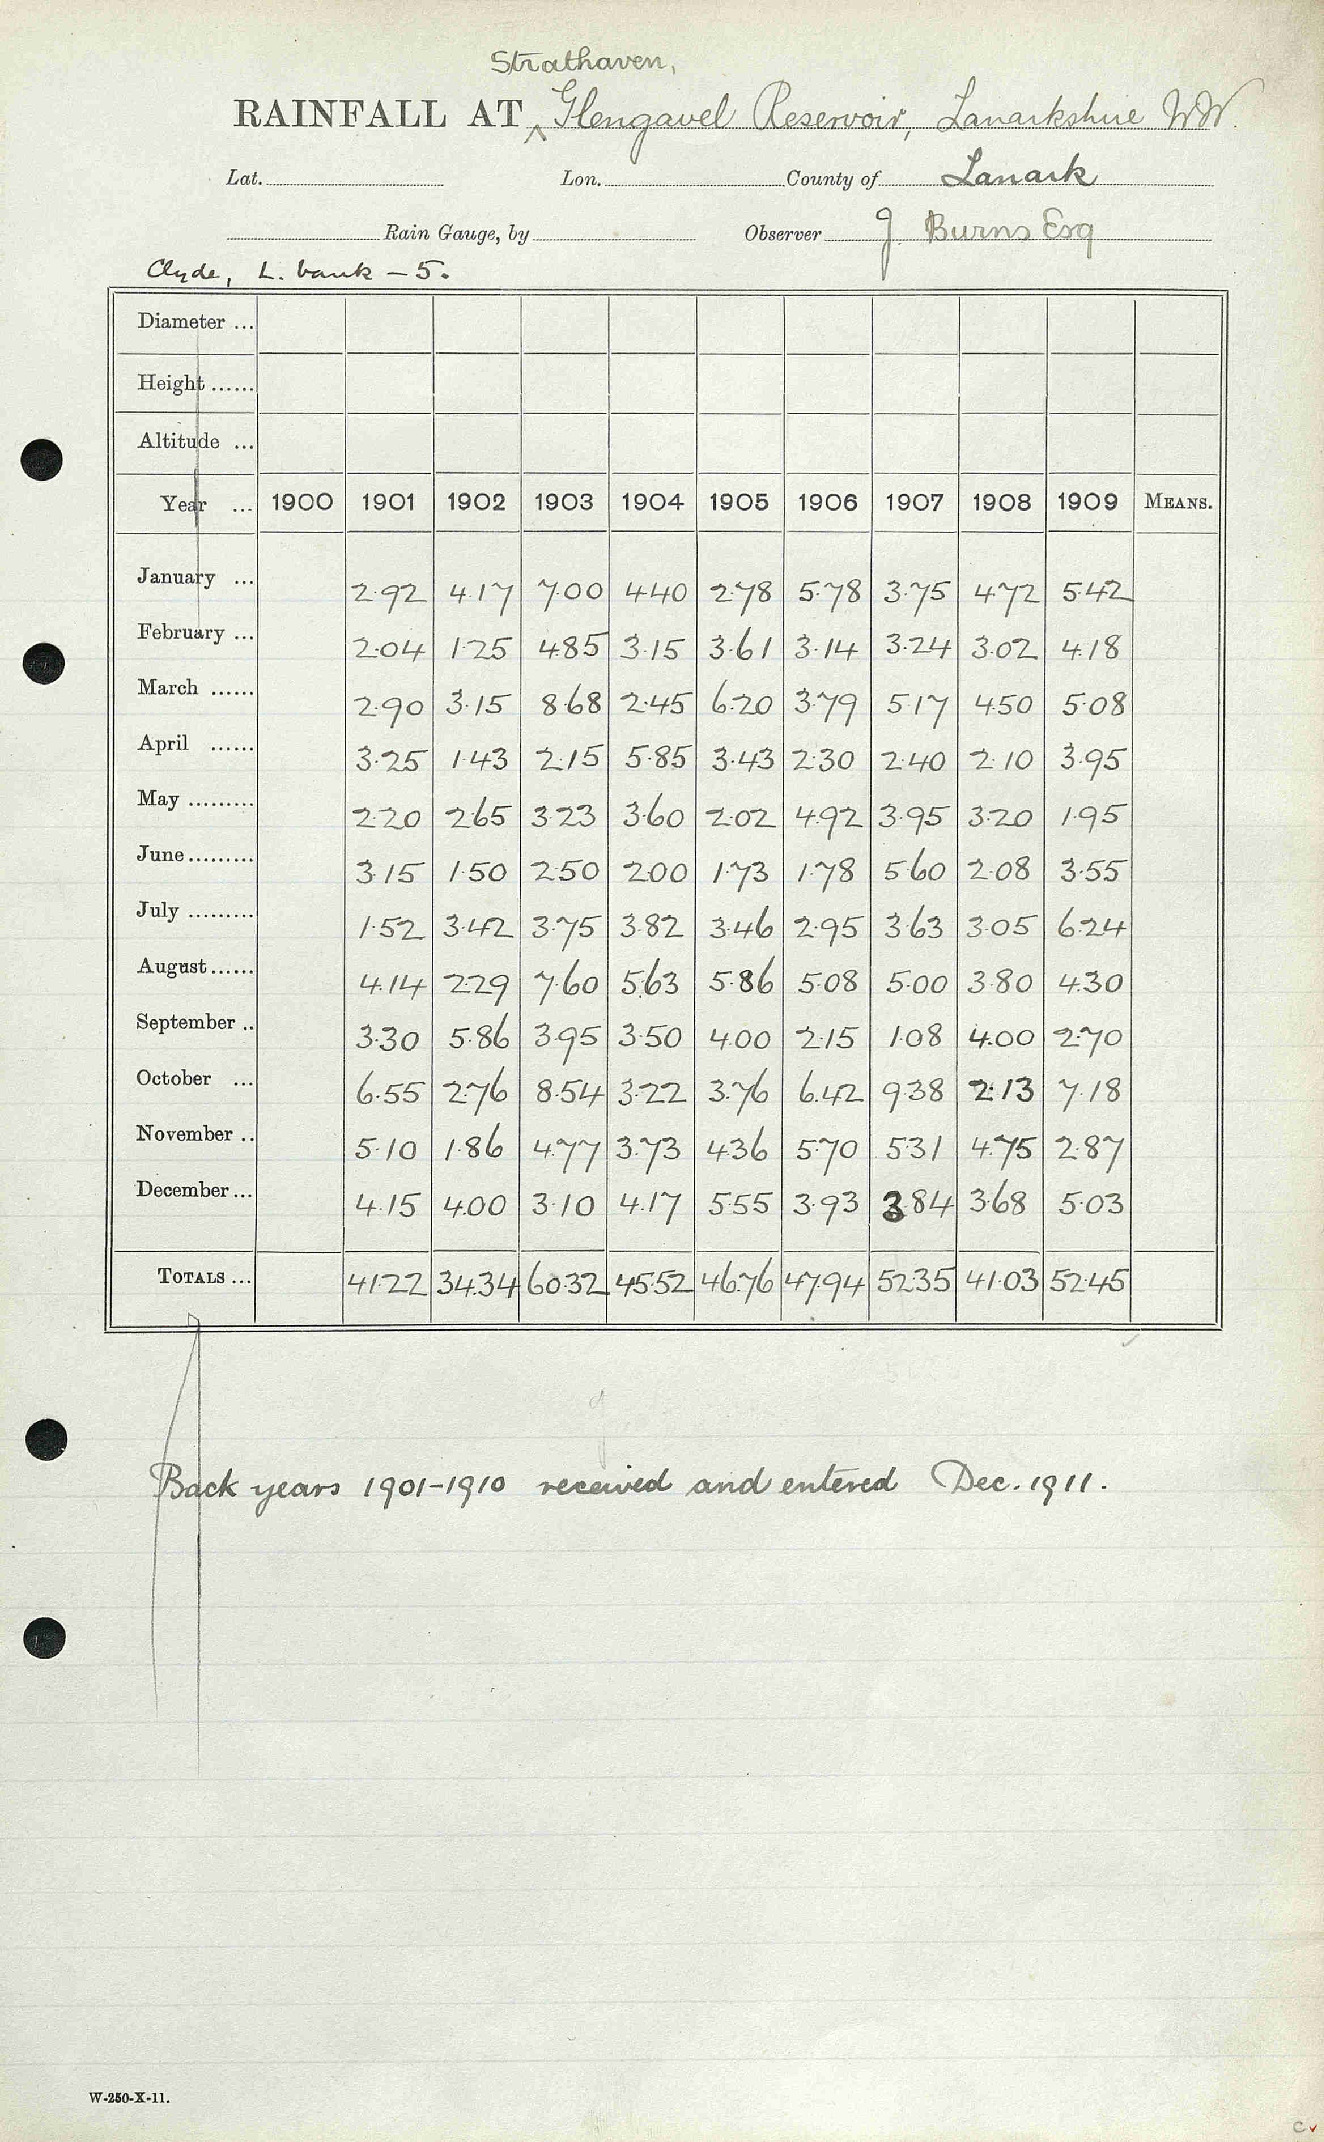 Strathaven,
RAINFALL AT ^ Glengavel Reservoir, Lanarkshire WW.
Lat. Lon. County of Lanark
Rain Gauge, by Observer J Burns Esq
Clyde, L. bank – 5.
Diameter ...
Height ......
Altitude ...
Year ... 1900 1901 1902 1903 1904 1905 1906 1907 1908 1909 MEANS.
January ... 2.92 4.17 7.00 4.40 2.78 5.78 3.75 4.72 5.42
February ... 2.04 1.25 4.85 3.15 3.61 3.14 3.24 3.02 4.18
March ...... 2.90 3.15 8.68 2.45 6.20 3.79 5.17 4.50 5.08
April ...... 3.25 1.43 2.15 5.85 3.43 2.30 2.40 2.10 3.95
May ......... 2.20 2.65 3.23 3.60 2.02 4.92 3.95 3.20 1.95
June ......... 3.15 1.50 2.50 2.00 1.73 1.78 5.60 2.08 3.55
July ......... 1.52 3.42 3.75 3.82 3.46 2.95 3.63 3.05 6.24
August ...... 4.14 2.29 7.60 5.63 5.86 5.08 5.00 3.80 4.30
September .. 3.30 5.86 3.95 3.50 4.00 2.15 1.08 4.00 2.70
October ... 6.55 2.76 8.54 3.22 3.76 6.42 9.38 2.13 7.18
November .. 5.10 1.86 4.77 3.73 4.36 5.70 5.31 4.75 2.87
December ... 4.15 4.00 3.10 4.17 5.55 3.93 3.84 3.68 5.03
TOTALS ... 41.22 34.34 60.32 45.52 46.76 47.94 52.35 41.03 52.45
Back years 1901-1910 received and entered Dec. 1911.
W-250-X-11.
C✓